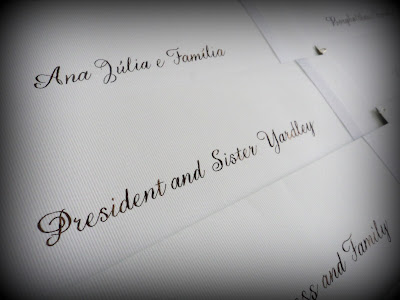 Ana Júlia e Família
President and Sister Yardley
and Family